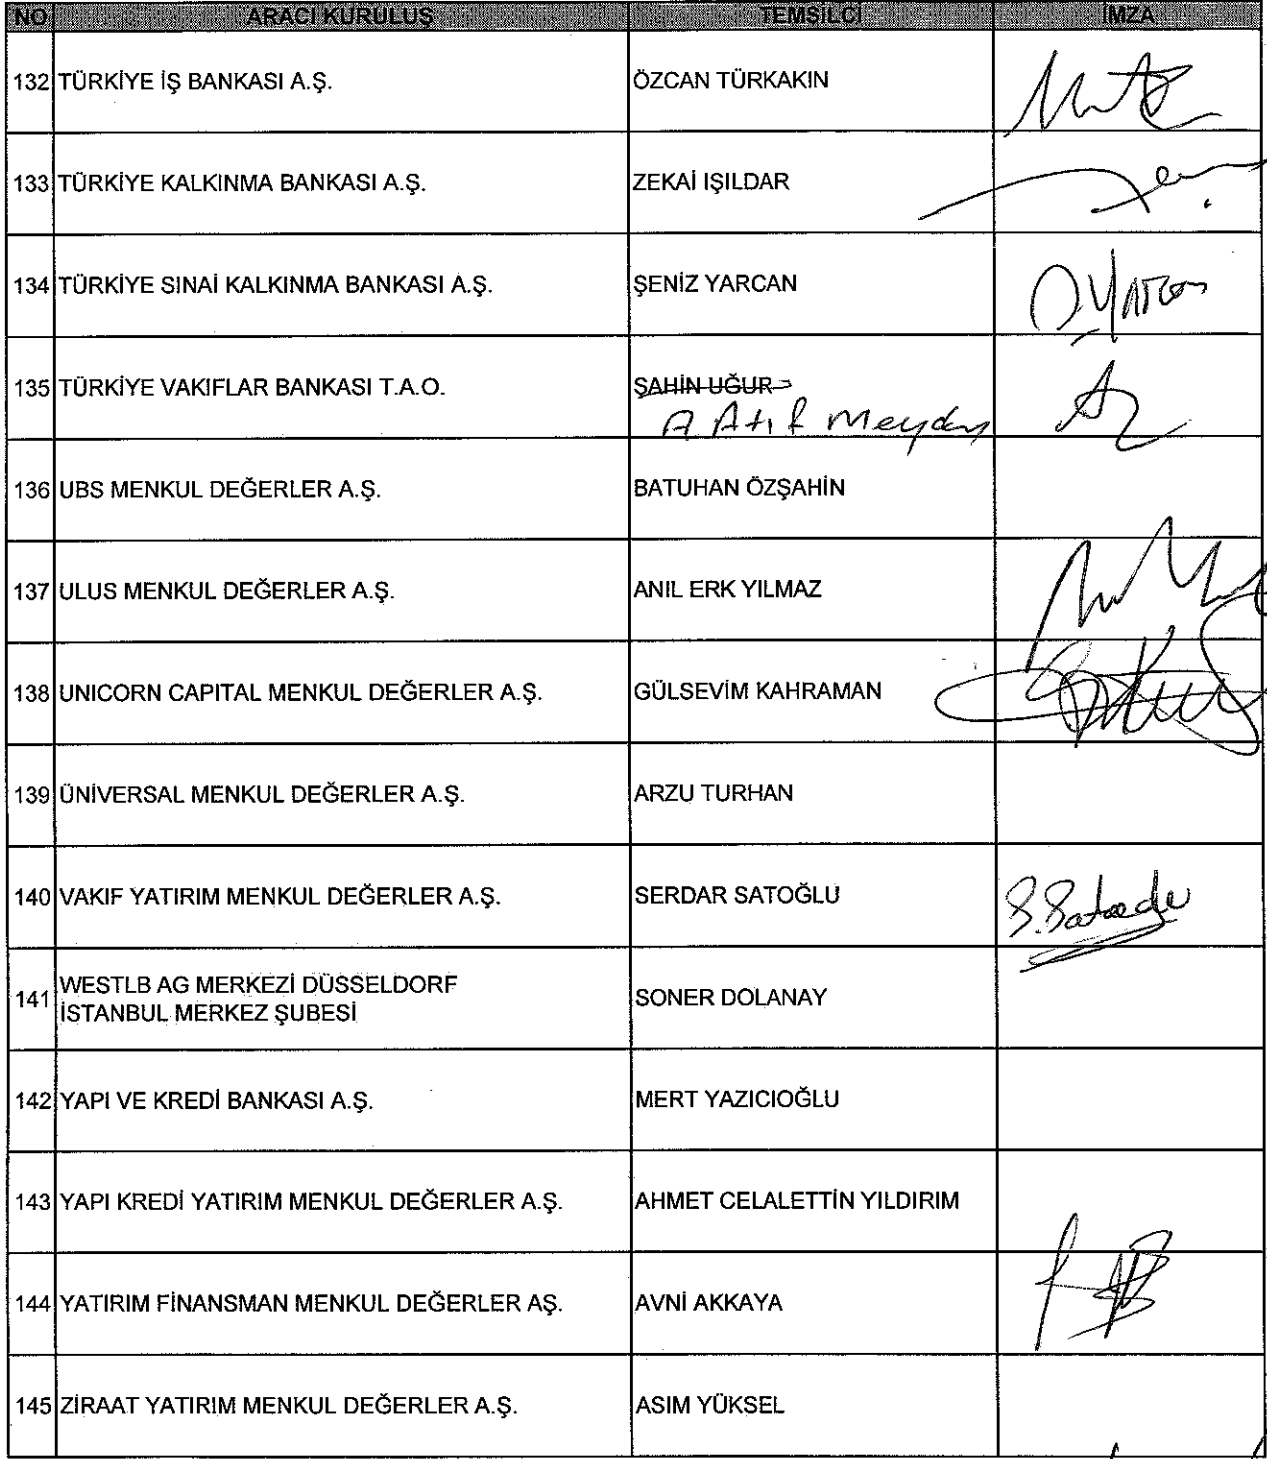 NO ARACI KURULUŞ TEMSİLCİ İMZA
132 TÜRKİYE İŞ BANKASI A.Ş. ÖZCAN TÜRKAKIN
133 TÜRKİYE KALKINMA BANKASI A.Ş. ZEKAİ IŞILDAR
134 TÜRKİYE SINAİ KALKINMA BANKASI A.Ş. ŞENİZ YARCAN
135 TÜRKİYE VAKIFLAR BANKASI T.A.O. ŞAHİN UĞUR
A Atıf Meydan
136 UBS MENKUL DEĞERLER A.Ş. BATUHAN ÖZŞAHİN
137 ULUS MENKUL DEĞERLER A.Ş. ANIL ERK YILMAZ
138 UNICORN CAPITAL MENKUL DEĞERLER A.Ş. GÜLSEVİM KAHRAMAN
139 ÜNİVERSAL MENKUL DEĞERLER A.Ş. ARZU TURHAN
140 VAKIF YATIRIM MENKUL DEĞERLER A.Ş. SERDAR SATOĞLU
141 WESTLB AG MERKEZİ DÜSSELDORF
İSTANBUL MERKEZ ŞUBESİ SONER DOLANAY
142 YAPI VE KREDİ BANKASI A.Ş. MERT YAZICIOĞLU
143 YAPI KREDİ YATIRIM MENKUL DEĞERLER A.Ş. AHMET CELALETTİN YILDIRIM
144 YATIRIM FİNANSMAN MENKUL DEĞERLER AŞ. AVNİ AKKAYA
145 ZİRAAT YATIRIM MENKUL DEĞERLER A.Ş. ASIM YÜKSEL